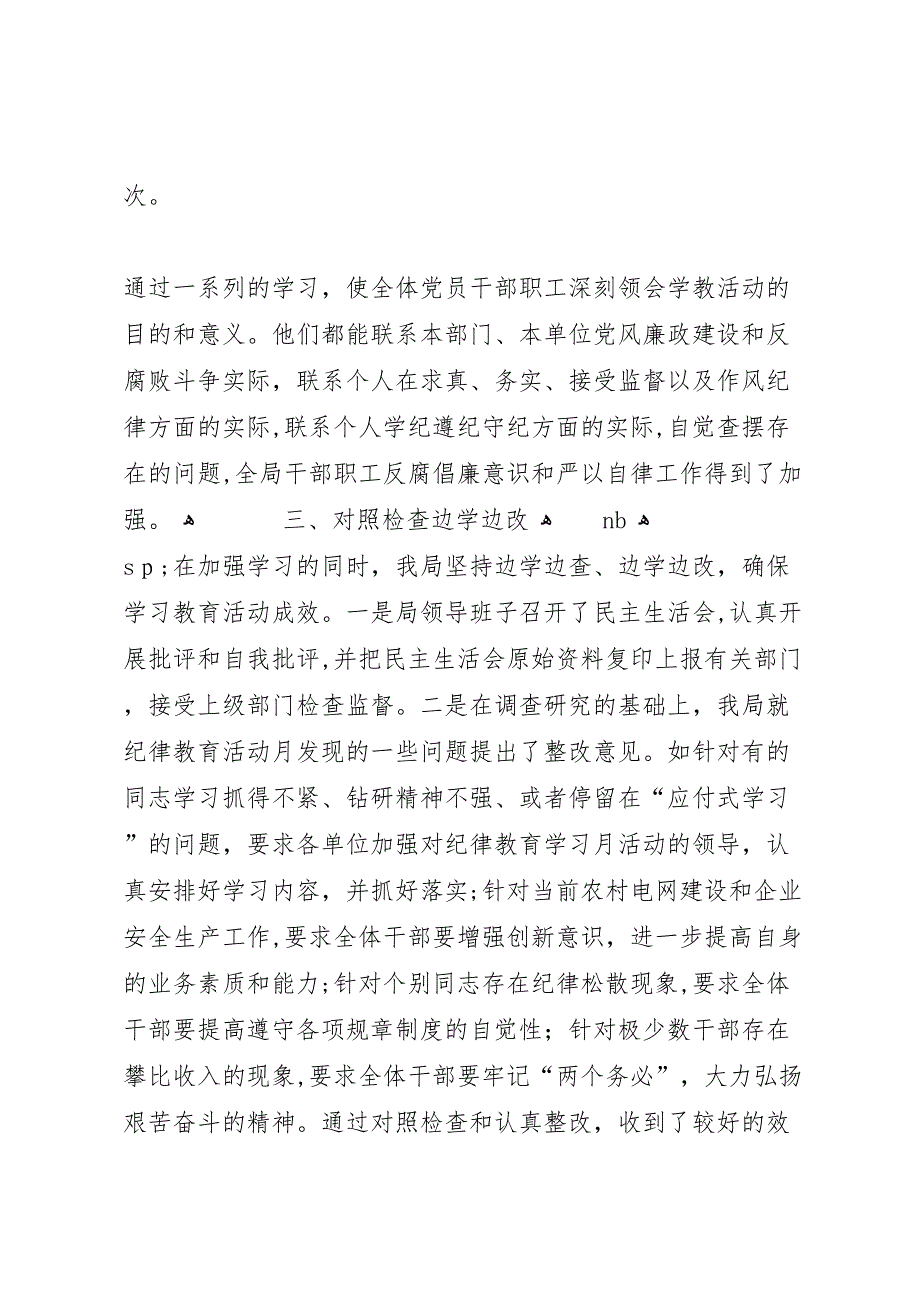 次。
通过一系列的学习，使全体党员干部职工深刻领会学教活动的
目的和意义。他们都能联系本部门、本单位党风廉政建设和反
腐败斗争实际，联系个人在求真、务实、接受监督以及作风纪
律方面的实际,联系个人学纪遵纪守纪方面的实际,自觉查摆存
在的问题,全局干部职工反腐倡廉意识和严以自律工作得到了加
强。 ﻫ 三、对照检查边学边改 ﻫ nb ﻫ
sp;在加强学习的同时，我局坚持边学边查、边学边改，确保
学习教育活动成效。一是局领导班子召开了民主生活会,认真开
展批评和自我批评,并把民主生活会原始资料复印上报有关部门
，接受上级部门检查监督。二是在调查研究的基础上，我局就
纪律教育活动月发现的一些问题提出了整改意见。如针对有的
同志学习抓得不紧、钻研精神不强、或者停留在“应付式学习
”的问题，要求各单位加强对纪律教育学习月活动的领导，认
真安排好学习内容，并抓好落实;针对当前农村电网建设和企业
安全生产工作,要求全体干部要增强创新意识，进一步提高自身
的业务素质和能力;针对个别同志存在纪律松散现象,要求全体
干部要提高遵守各项规章制度的自觉性；针对极少数干部存在
攀比收入的现象,要求全体干部要牢记“两个务必”，大力弘扬
艰苦奋斗的精神。通过对照检查和认真整改，收到了较好的效